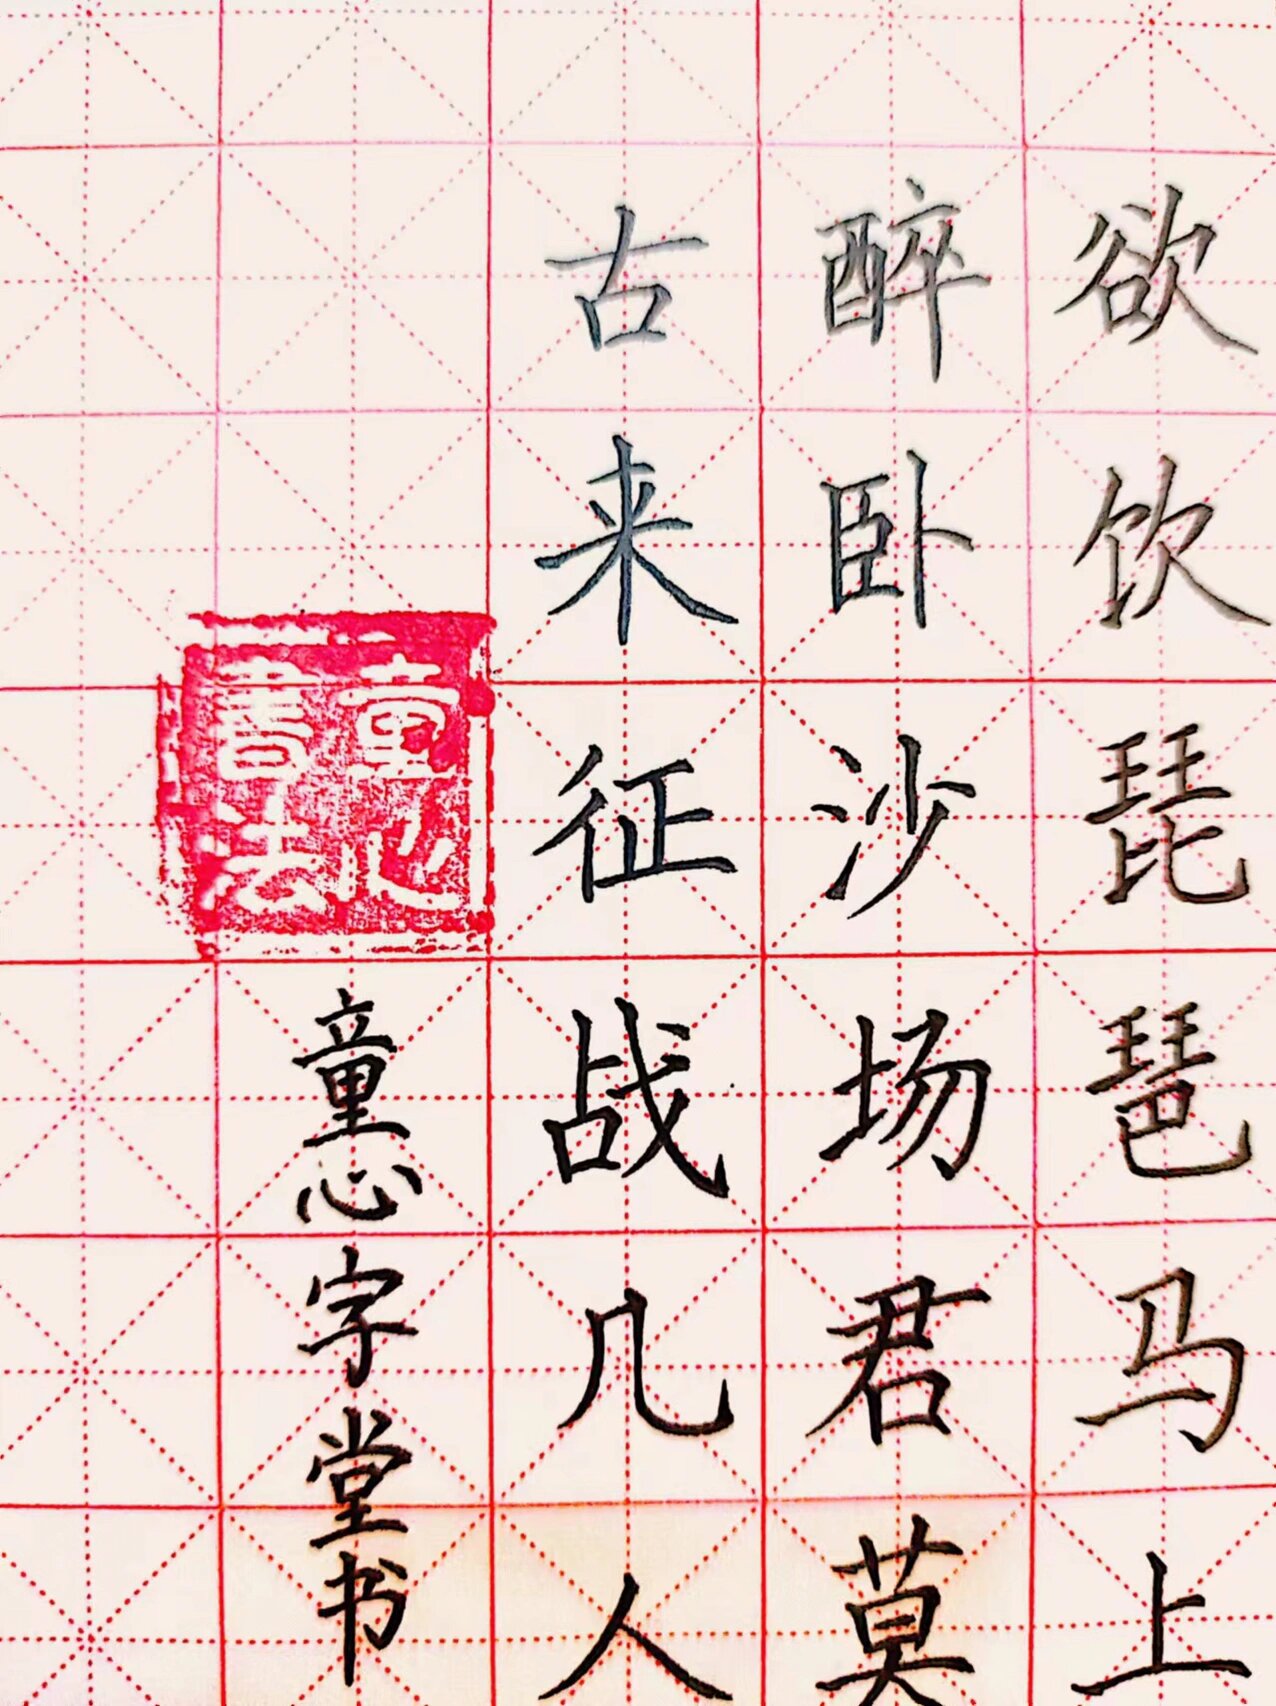 欲饮琵琶马上
醉卧沙场君莫
古来征战几人
童心字堂书
童心
書法